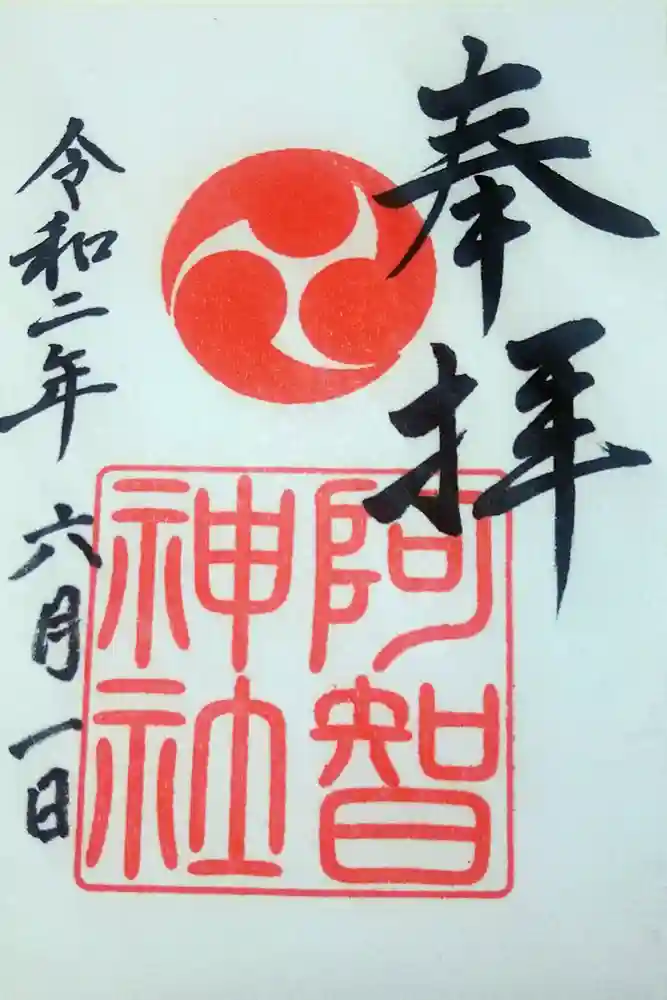 奉拝
阿智
神社
令和二年 六月一日